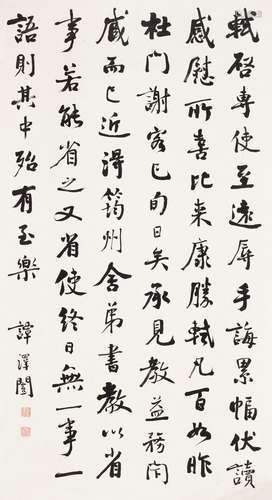 軾啓專使至遠辱手誨累幅伏讀
感慰所喜比来康勝軾凡百如昨
杜門謝客已旬日矣承見教益務閉
藏而已近得筠州舍弟書教以省
事若能省之又省使終日無一事一
語則其中殆有至樂 譚澤闓